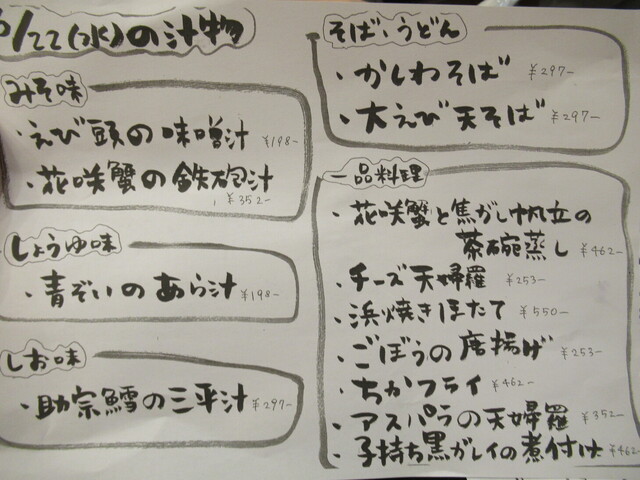 /22(水)の汁物
みそ味
・えび頭の味噌汁 ¥198-
・花咲蟹の鉄砲汁
¥352-
しょうゆ味
・青ぞいのあら汁 ¥198-
しお味
・助宗鱈の三平汁 ¥297-
そば、うどん
・かしわそば ¥297-
・大えび天そば ¥297-
一品料理
・花咲蟹と焦がし帆立の
茶碗蒸し ¥462-
・チーズ天婦羅 ¥253-
・浜焼きほたて ¥550-
・ごぼうの唐揚げ ¥253-
・ちかフライ ¥462-
・アスパラの天婦羅 ¥352-
・子持ち黒ガレイの煮付け ¥462-